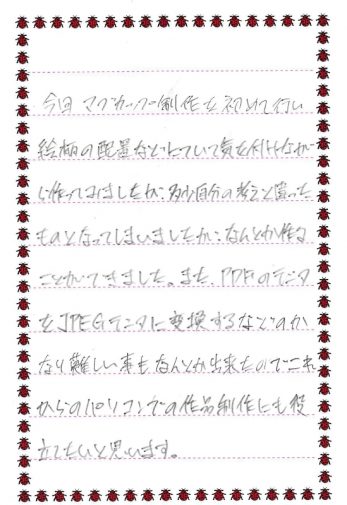 今回マグカップ制作を初めて行い
絵柄の配置などについて気を付けなが
ら作ってみましたが、多少自分の考えと違った
ものとなってしまいましたが、なんとか作る
ことができました。また、PDFのデータ
をJPEGデータに変換するなどのか
なり難しい事もなんとか出来たのでこれ
からのパソコンでの作品制作にも役
立てたいと思います。